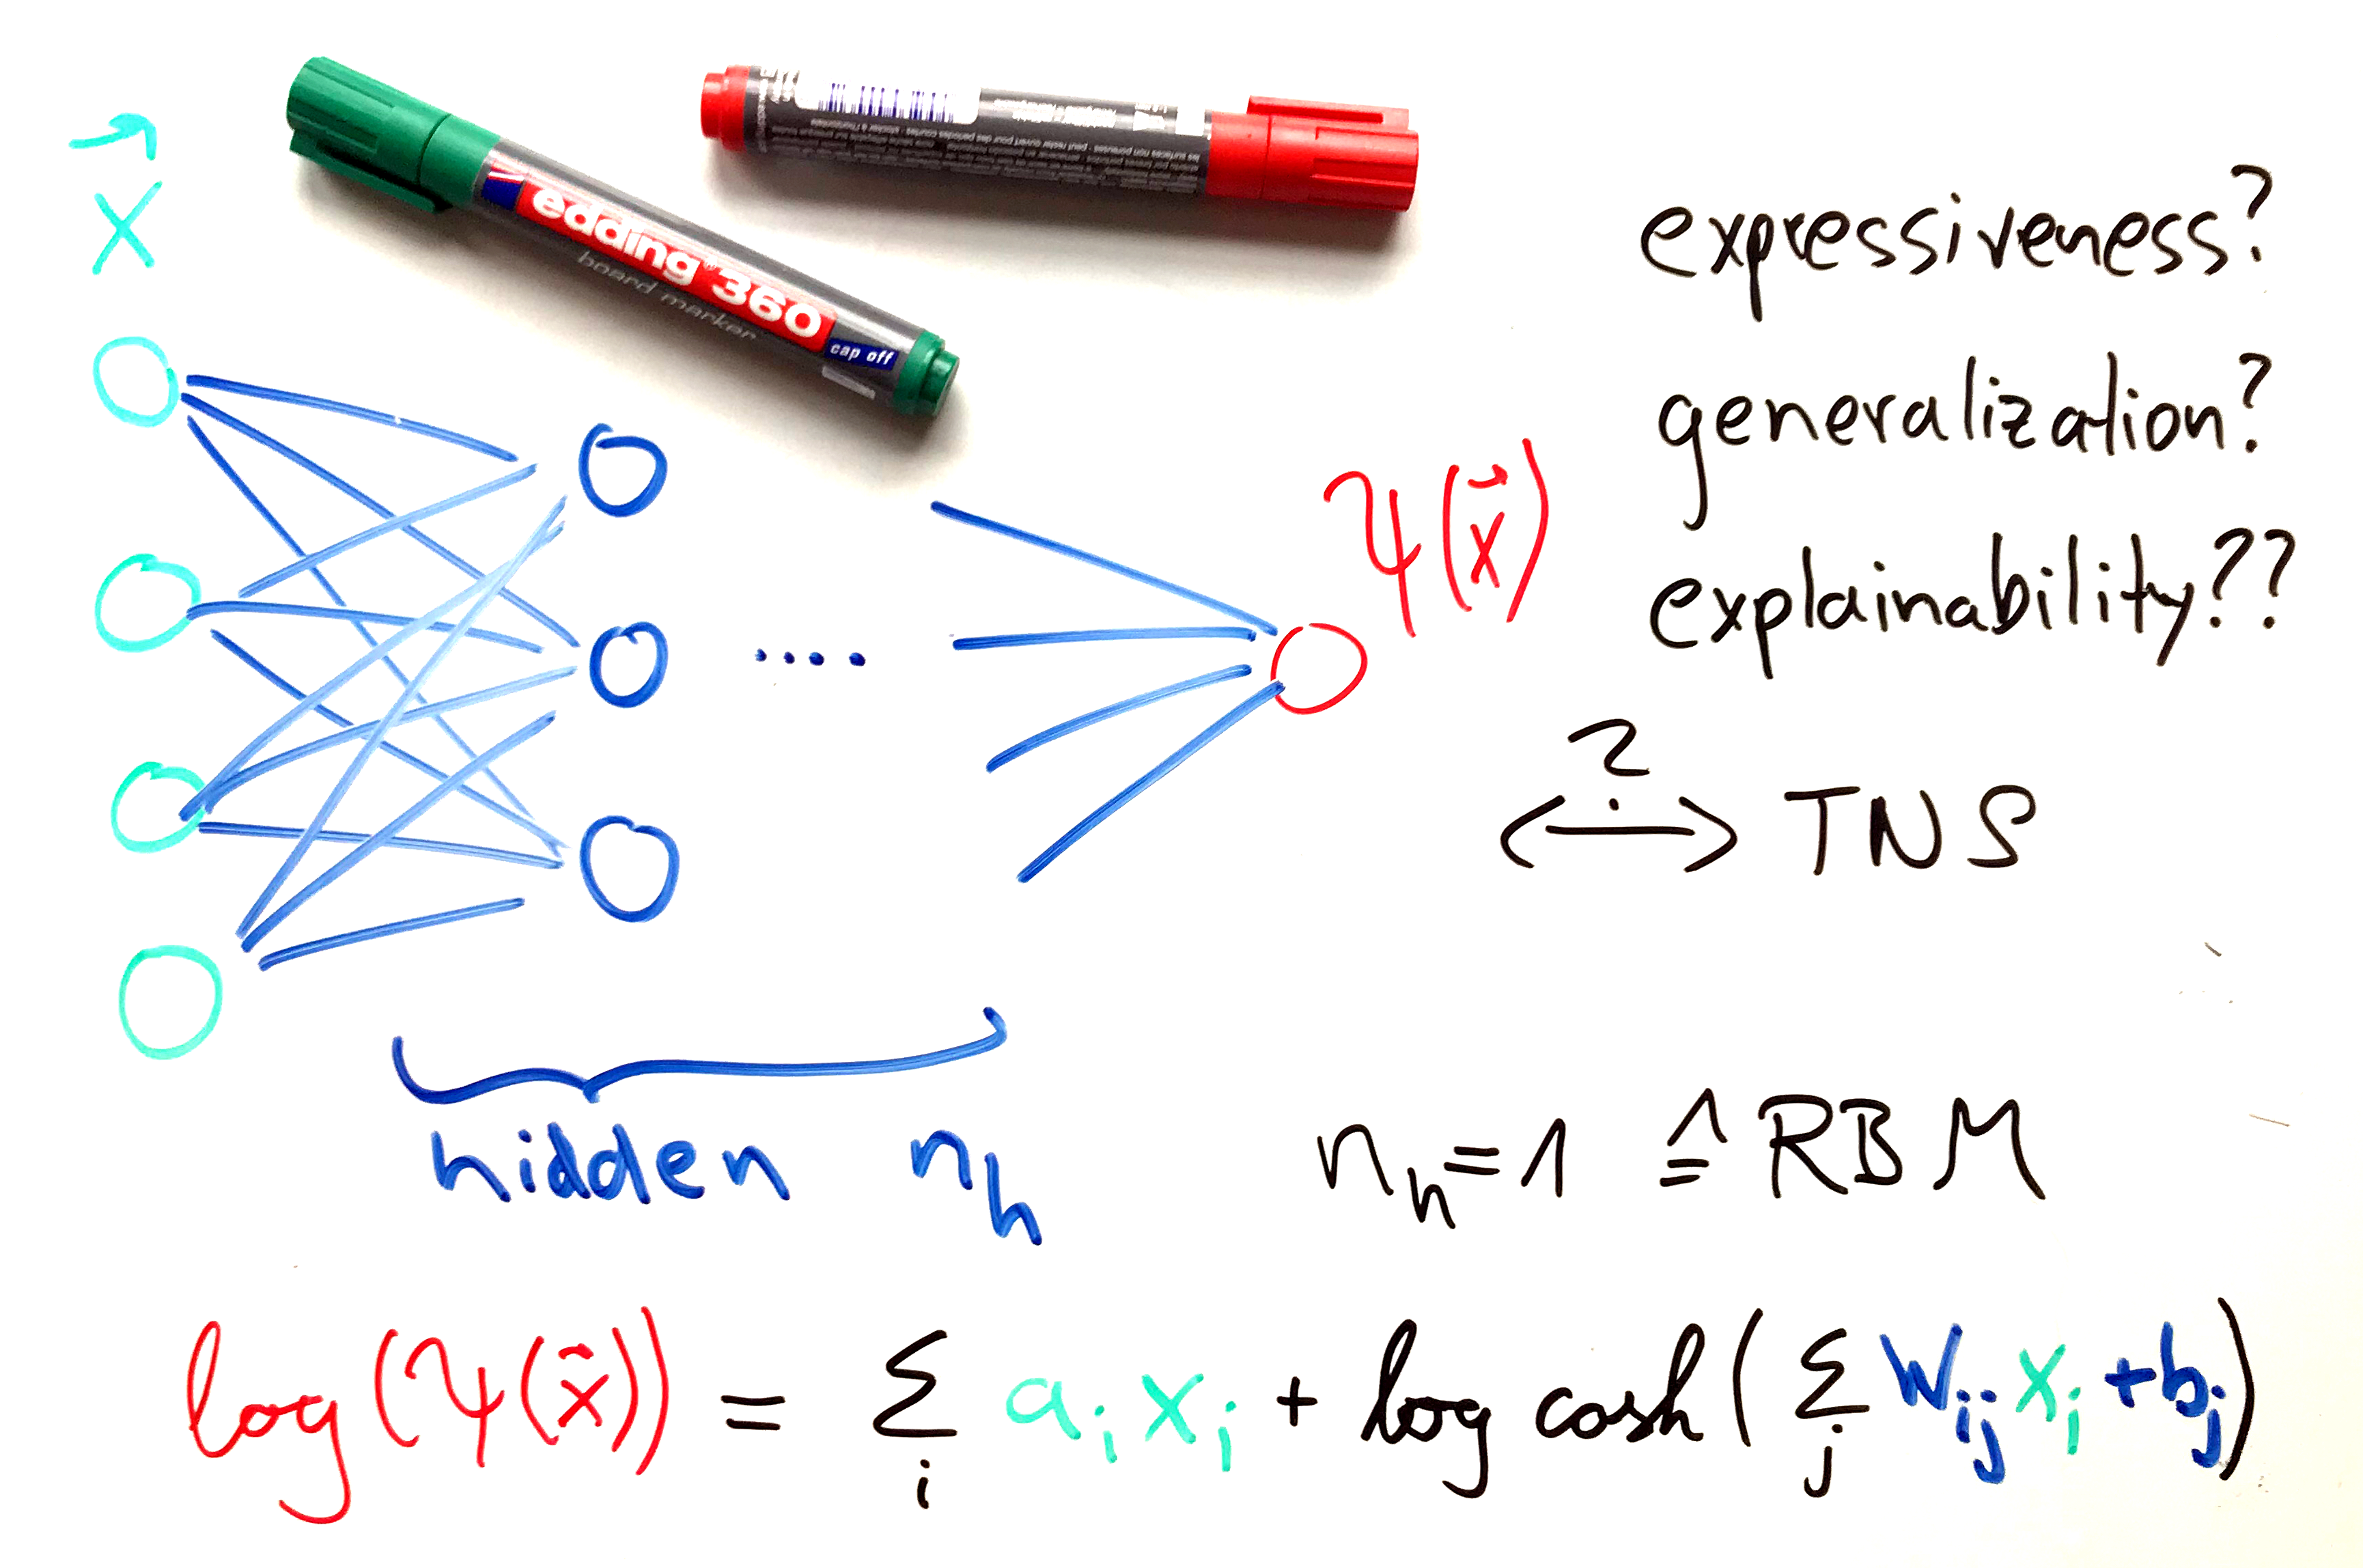 x⃗
edding 360
board marker
cap off
expressiveness?
generalization?
explainability??
Ψ(x⃗)
? ⟷ TNS
....
hidden n_h
n_h = 1 ≙ RBM
log(Ψ(x⃗)) = Σ_i a_i x_i + log cosh(Σ_j W_ij x_i + b_j)